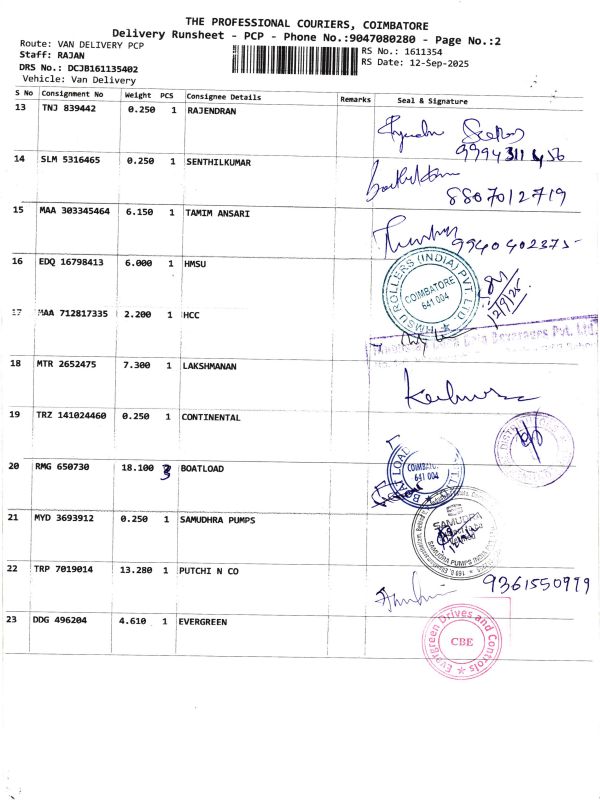 THE PROFESSIONAL COURIERS, COIMBATORE
Delivery Runsheet - PCP - Phone No.:9047080280 - Page No.:2
Route: VAN DELIVERY PCP
RS No.: 1611354
Staff: RAJAN
RS Date: 12-Sep-2025
DRS No.: DCJB161135402
Vehicle: Van Delivery
S No Consignment No Weight PCS Consignee Details Remarks Seal & Signature
13 TNJ 839442 0.250 1 RAJENDRAN
9994311456
14 SLM 5316465 0.250 1 SENTHILKUMAR
8807012719
15 MAA 303345464 6.150 1 TAMIM ANSARI
9940402375
16 EDQ 16798413 6.000 1 HMSU
HMSU ROLLERS (INDIA) PVT. LTD.
COIMBATORE
641 004
12/9/25
17 MAA 712817335 2.200 1 HCC
Beverages Pvt. Ltd.
18 MTR 2652475 7.300 1 LAKSHMANAN
19 TRZ 141024460 0.250 1 CONTINENTAL
20 RMG 650730 18.100 3 BOATLOAD
641 004
21 MYD 3693912 0.250 1 SAMUDHRA PUMPS
SAMUDRA
SAMUDRA PUMPS INDIA
22 TRP 7019014 13.280 1 PUTCHI N CO
9361550999
23 DDG 496204 4.610 1 EVERGREEN
Evergreen Drives and Controls
CBE